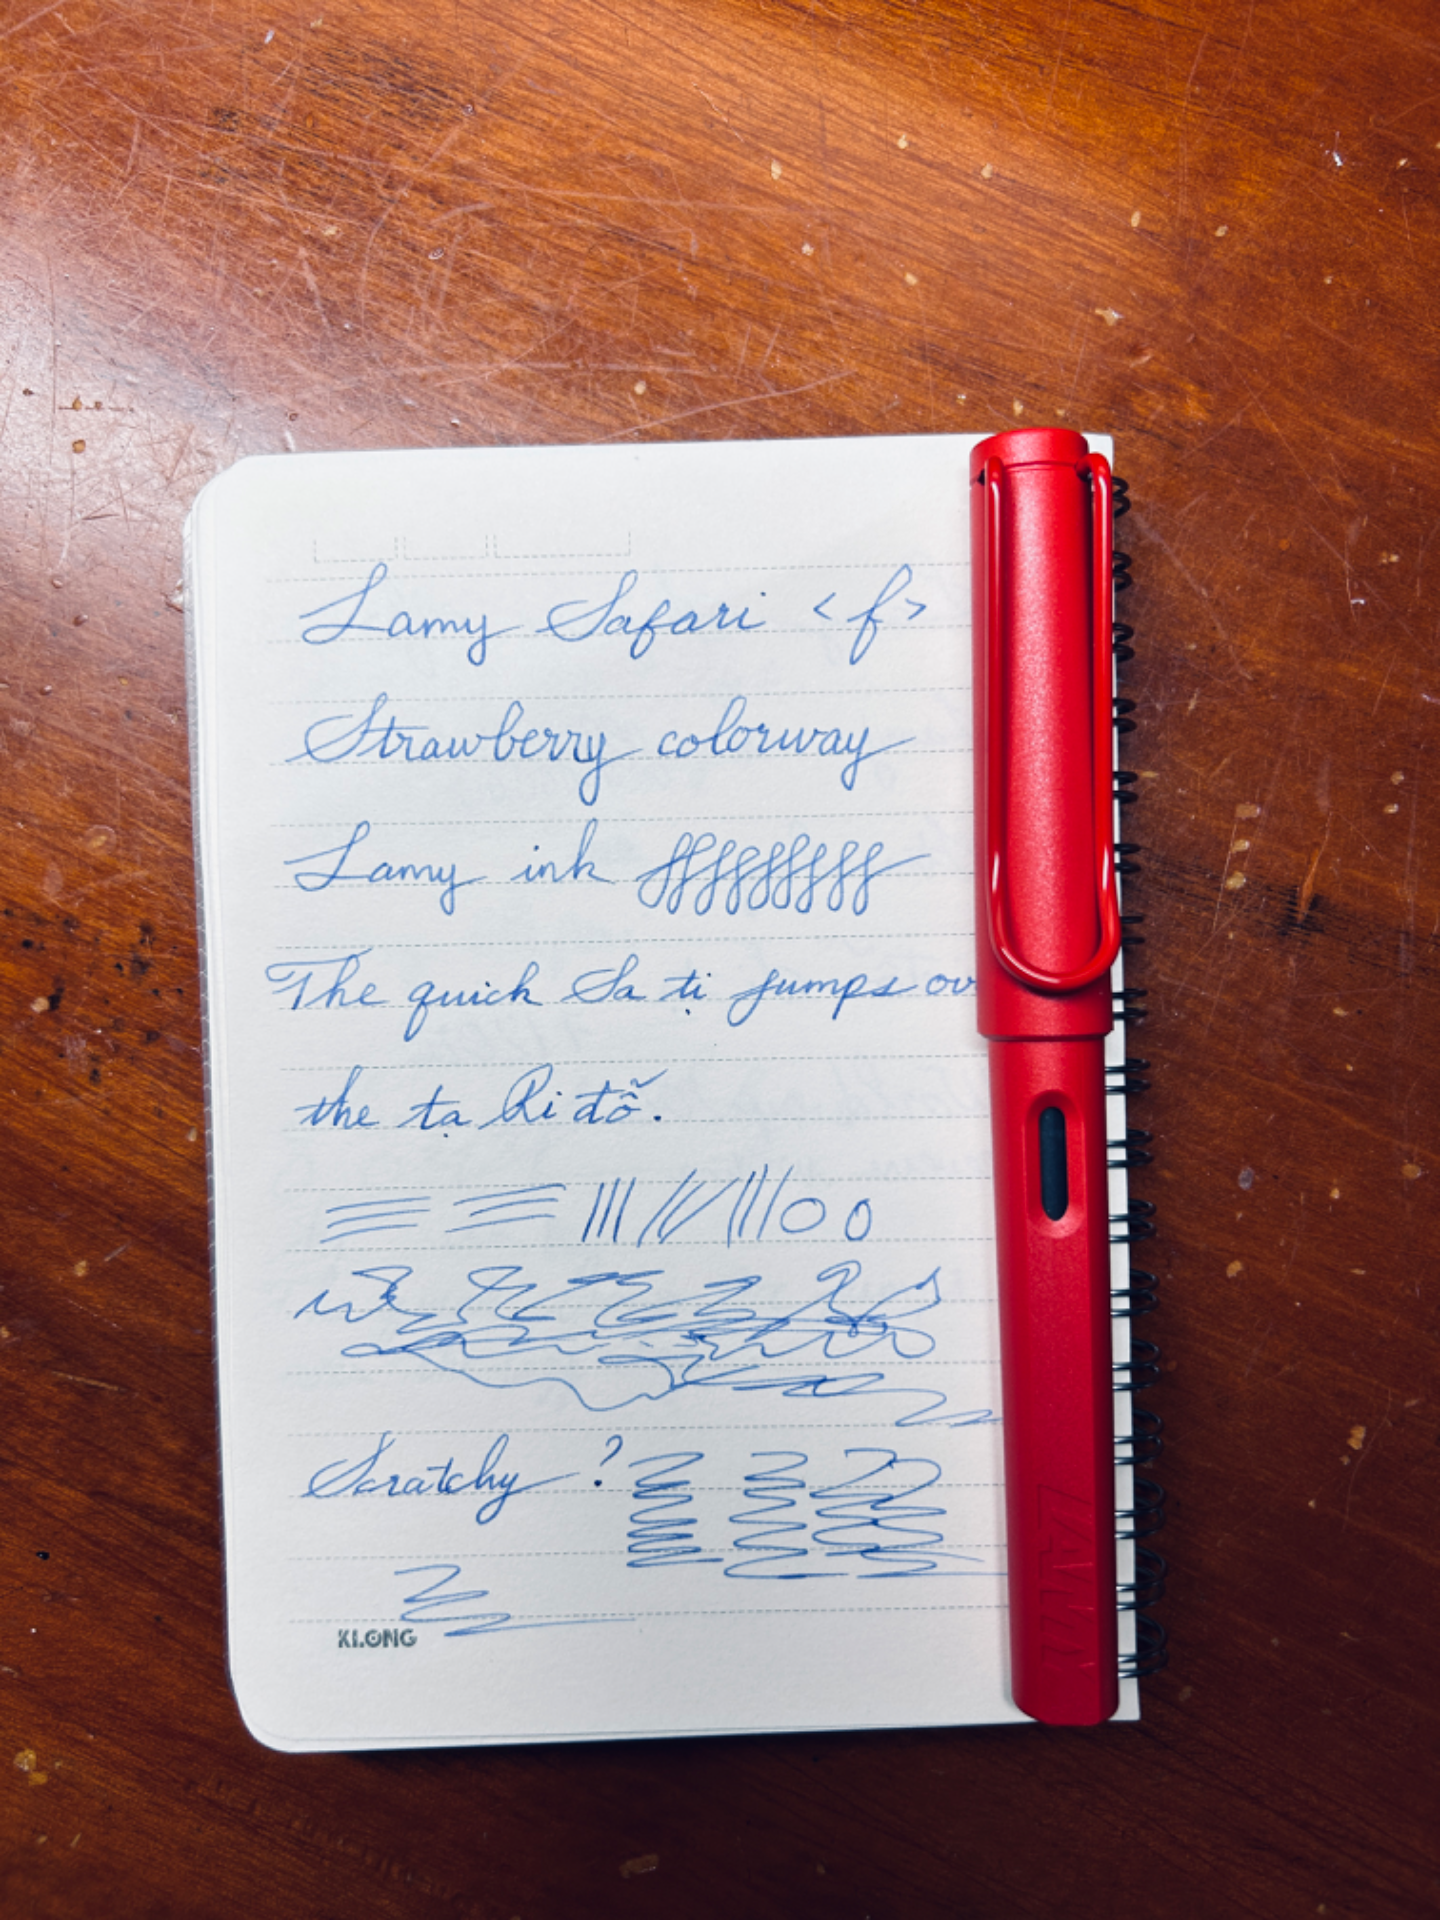 Lamy Safari <f>
Strawberry colorway
Lamy ink
The quick Sa ti jumps ov
the tạ Ri đỗ.
Scratchy ?
KLONG
LAMY